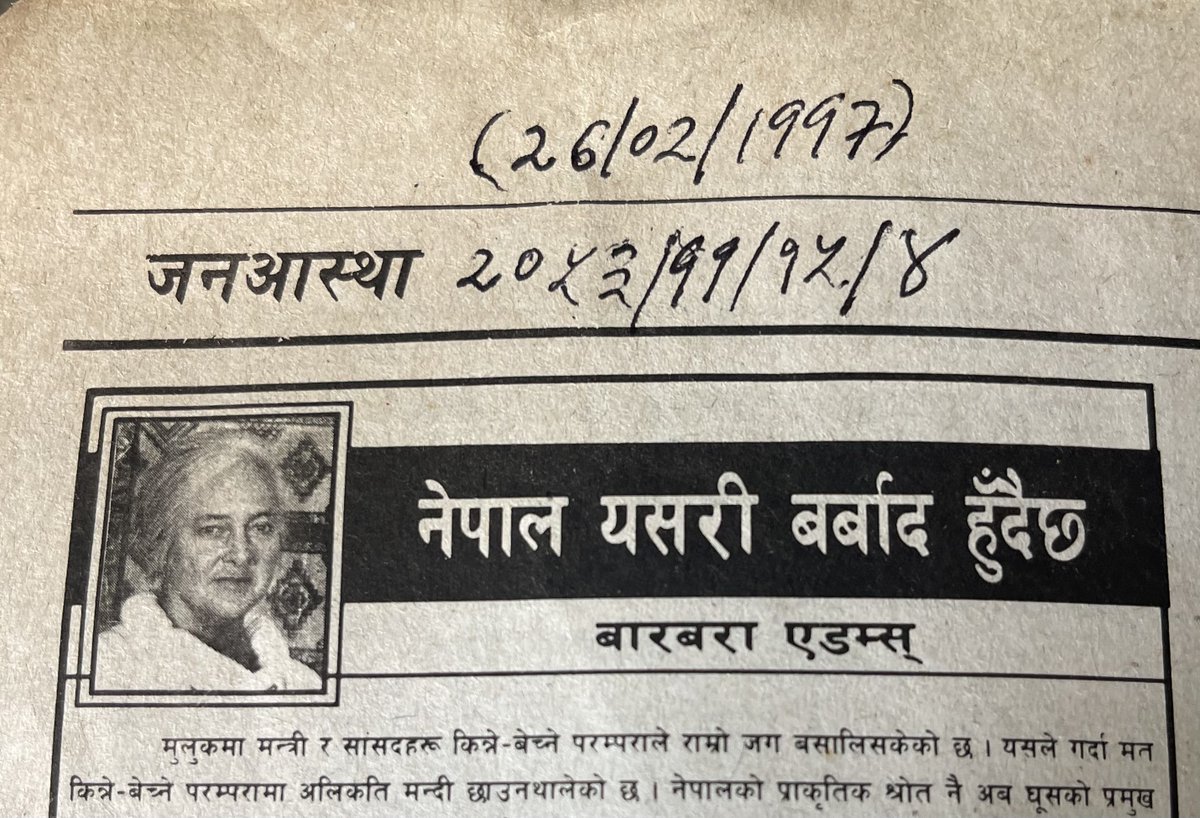 (26/02/1997)
जनआस्था २०५३/११/१५/४
नेपाल यसरी बर्बाद हुँदैछ
बारबरा एडम्स्
मुलुकमा मन्त्री र सांसदहरू किन्ने-बेच्ने परम्पराले राम्रो जग बसालिसकेको छ । यसले गर्दा मत
किन्ने-बेच्ने परम्परामा अलिकति मन्दी छाउनथालेको छ । नेपालको प्राकृतिक श्रोत नै अब घूसको प्रमुख